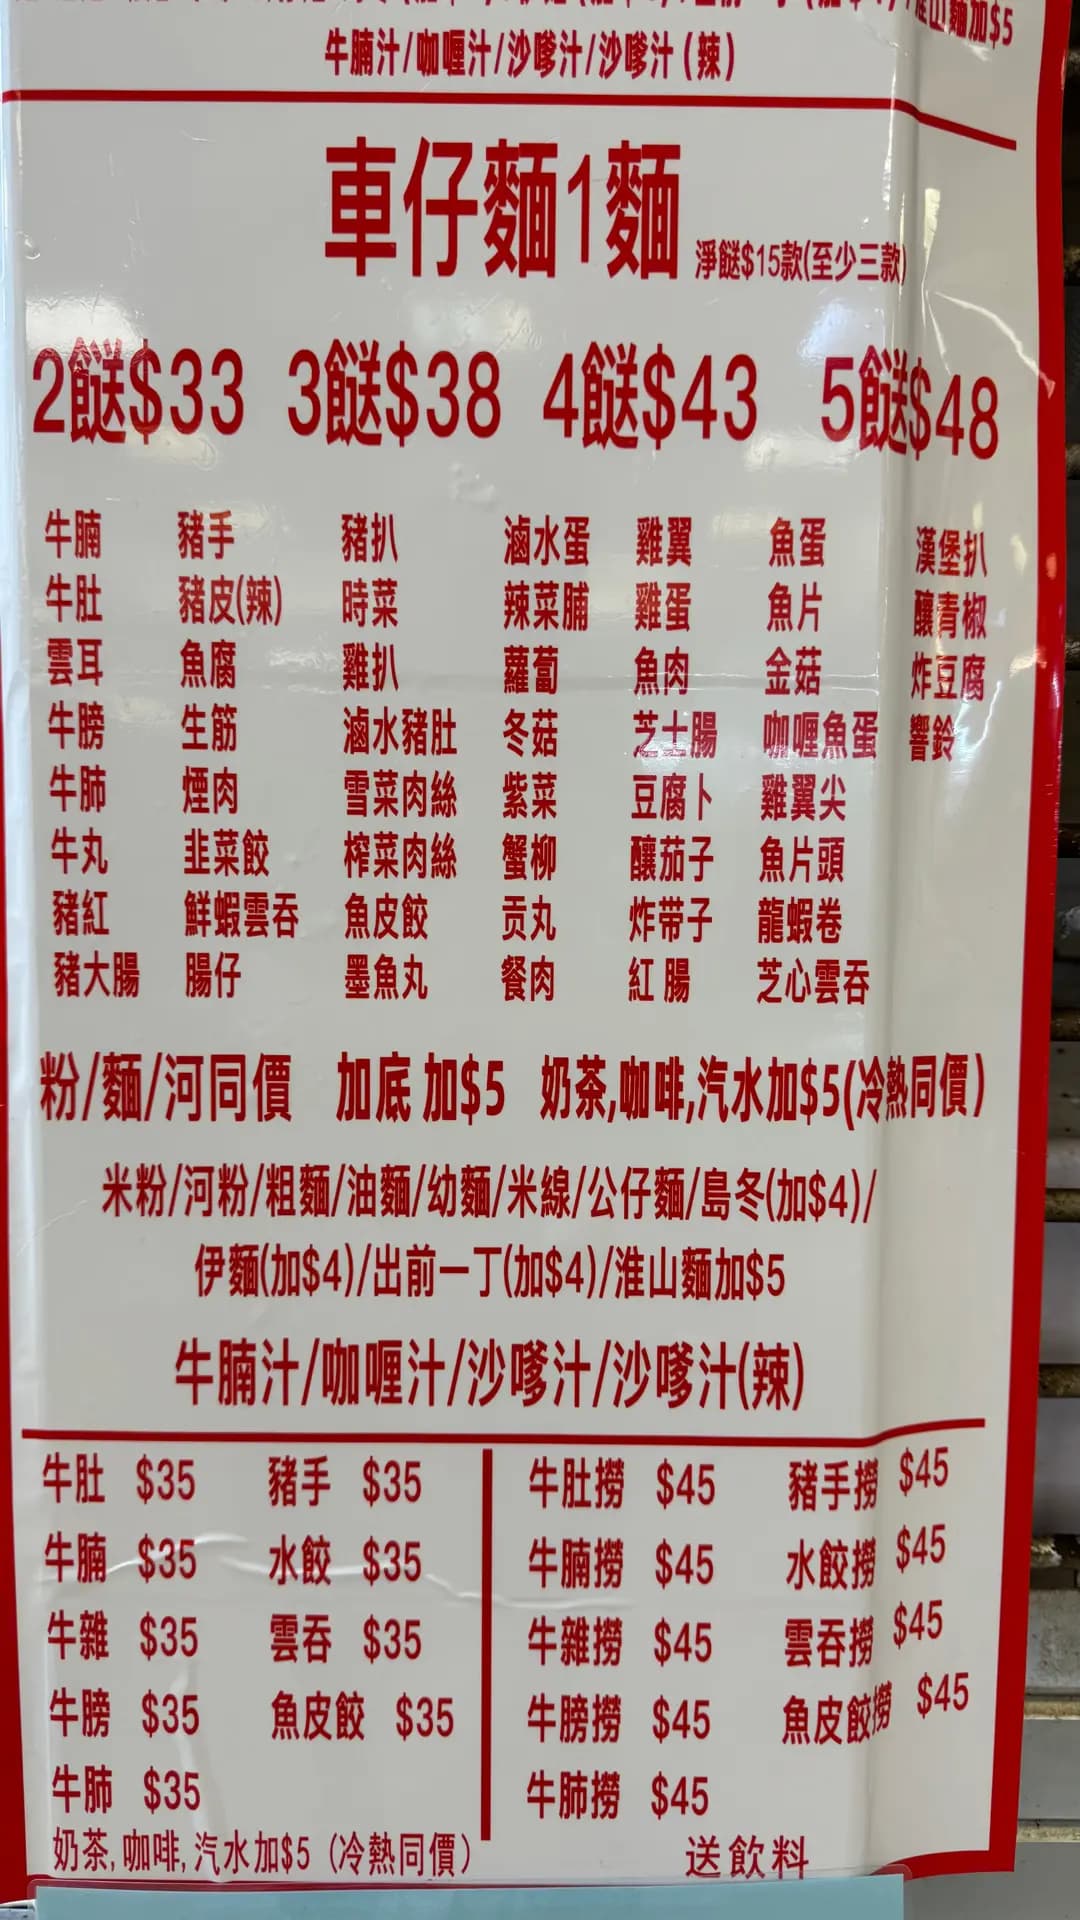 淮山麵加$5
牛腩汁/咖喱汁/沙嗲汁/沙嗲汁(辣)
車仔麵1麵 淨餸$15款(至少三款)
2餸$33 3餸$38 4餸$43 5餸$48
牛腩 豬手 豬扒 滷水蛋 雞翼 魚蛋 漢堡扒
牛肚 豬皮(辣) 時菜 辣菜脯 雞蛋 魚片 釀青椒
雲耳 魚腐 雞扒 蘿蔔 魚肉 金菇 炸豆腐
牛膀 生筋 滷水豬肚 冬菇 芝士腸 咖喱魚蛋 響鈴
牛肺 煙肉 雪菜肉絲 紫菜 豆腐卜 雞翼尖
牛丸 韭菜餃 榨菜肉絲 蟹柳 釀茄子 魚片頭
豬紅 鮮蝦雲吞 魚皮餃 贡丸 炸带子 龍蝦卷
豬大腸 腸仔 墨魚丸 餐肉 紅腸 芝心雲吞
粉/麵/河同價 加底 加$5 奶茶,咖啡,汽水加$5(冷熱同價)
米粉/河粉/粗麵/油麵/幼麵/米線/公仔麵/烏冬(加$4)/
伊麵(加$4)/出前一丁(加$4)/淮山麵加$5
牛腩汁/咖喱汁/沙嗲汁/沙嗲汁(辣)
牛肚 $35 豬手 $35 牛肚撈 $45 豬手撈 $45
牛腩 $35 水餃 $35 牛腩撈 $45 水餃撈 $45
牛雜 $35 雲吞 $35 牛雜撈 $45 雲吞撈 $45
牛膀 $35 魚皮餃 $35 牛膀撈 $45 魚皮餃撈 $45
牛肺 $35 牛肺撈 $45
奶茶,咖啡,汽水加$5 (冷熱同價) 送飲料